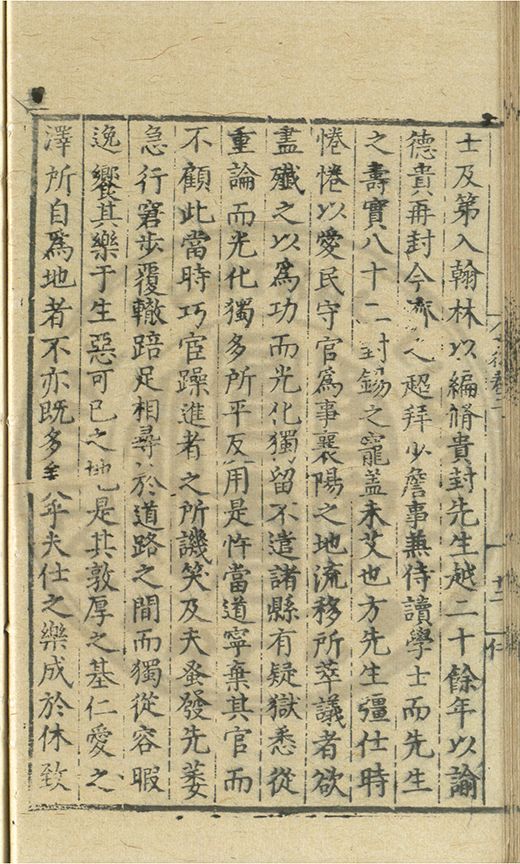 士及第入翰林以編脩貴封先生越二十餘年以諭
德貴再封今超拜少詹事兼侍讀學士而先生
之壽實八十二封錫之寵蓋未艾也方先生彊仕時
惓惓以愛民守官為事襄陽之地流移所萃議者欲
盡殲之以為功而光化獨留不遣諸縣有疑獄悉從
重論而光化獨多所平反用是忤當道寧棄其官而
不顧此當時巧宦躁進者之所譏笑及夫蚤發先萎
急行窘步覆轍踣足相尋於道路之間而獨從容暇
逸饗其樂于生惡可已之地是其敦厚之基仁愛之
澤所自為地者不亦既多矣乎夫仕之樂成於休致
十二
仁